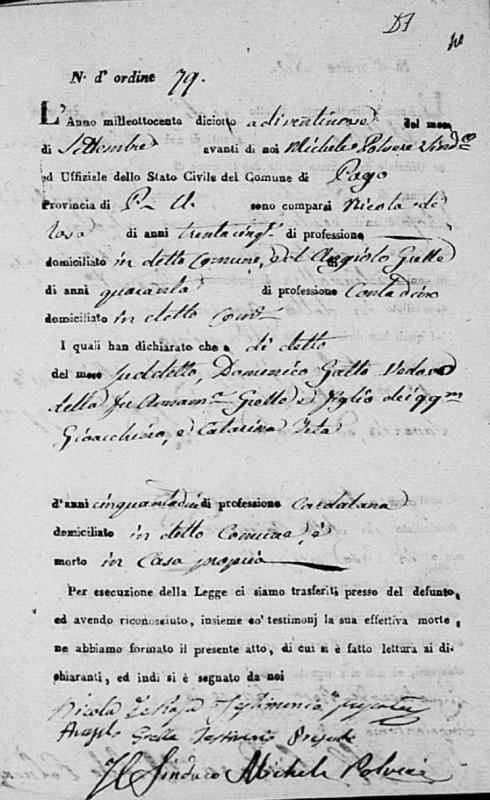 N. d' ordine 79.
L'Anno milleottocento diciotto a di ventinove del mese
di Settembre avanti di noi Michele Polvere Sind.co
ed Uffiziale dello Stato Civile del Comune di Pago
Provincia di P. U. sono comparsi Nicola de
Rosa di anni trentacinq.e di professione
domiciliato in detto Comune, ed Angiolo Grelle
di anni quaranta di professione Contadino
domiciliato in detto
I quali han dichiarato che a dì detto
del mese suddetto, Domenico Gatto Vedovo
della fu Annam.a Grelle e figlio dei qqm
Gioacchino, e Catarina
d'anni di professione
domiciliato in detto Comune, è
morto in Casa propria
Per esecuzione della Legge ci siamo trasferiti presso del defunto,
ed avendo riconosciuto, insieme co' testimonj la sua effettiva morte,
ne abbiamo formato il presente atto, di cui si è fatto lettura ai di-
chiaranti, ed indi si è segnato da noi
Nicola de Rosa Testimonio presente
Angelo Grelle Testimonio Presente
Il Sindaco Michele Polvere